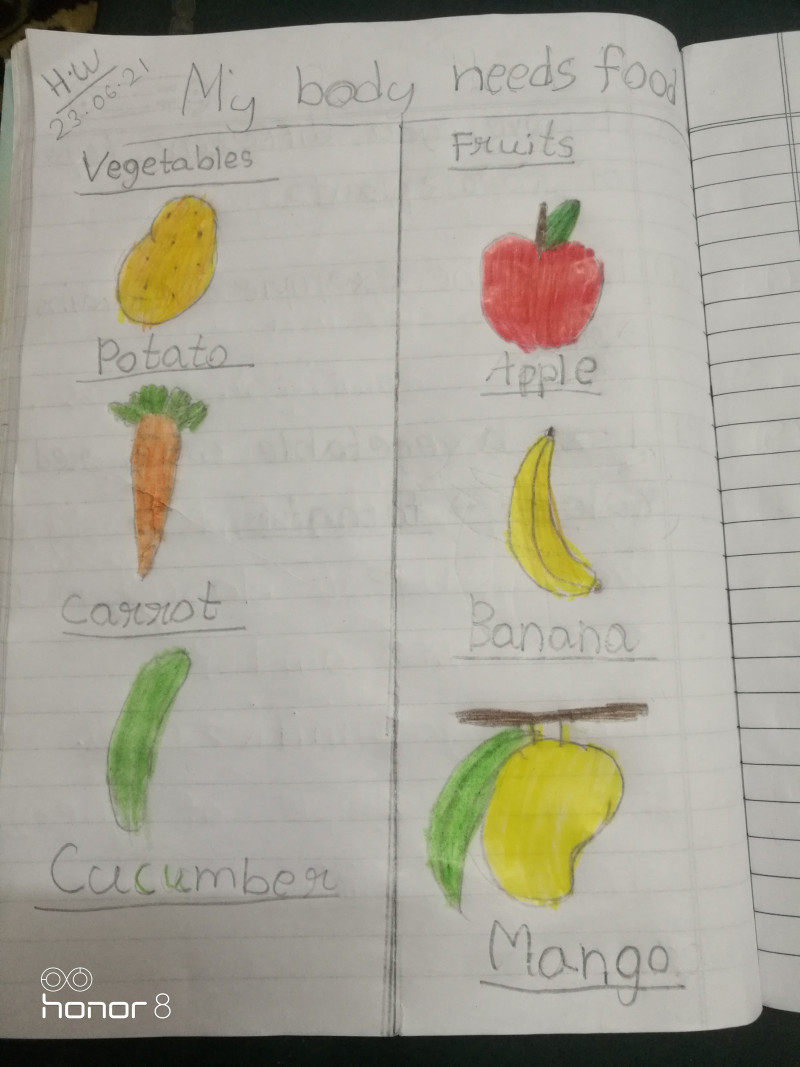 H.W
23.06.21
My body needs food
Vegetables
Potato
Carrot
Cucumber
Fruits
Apple
Banana
Mango
honor 8